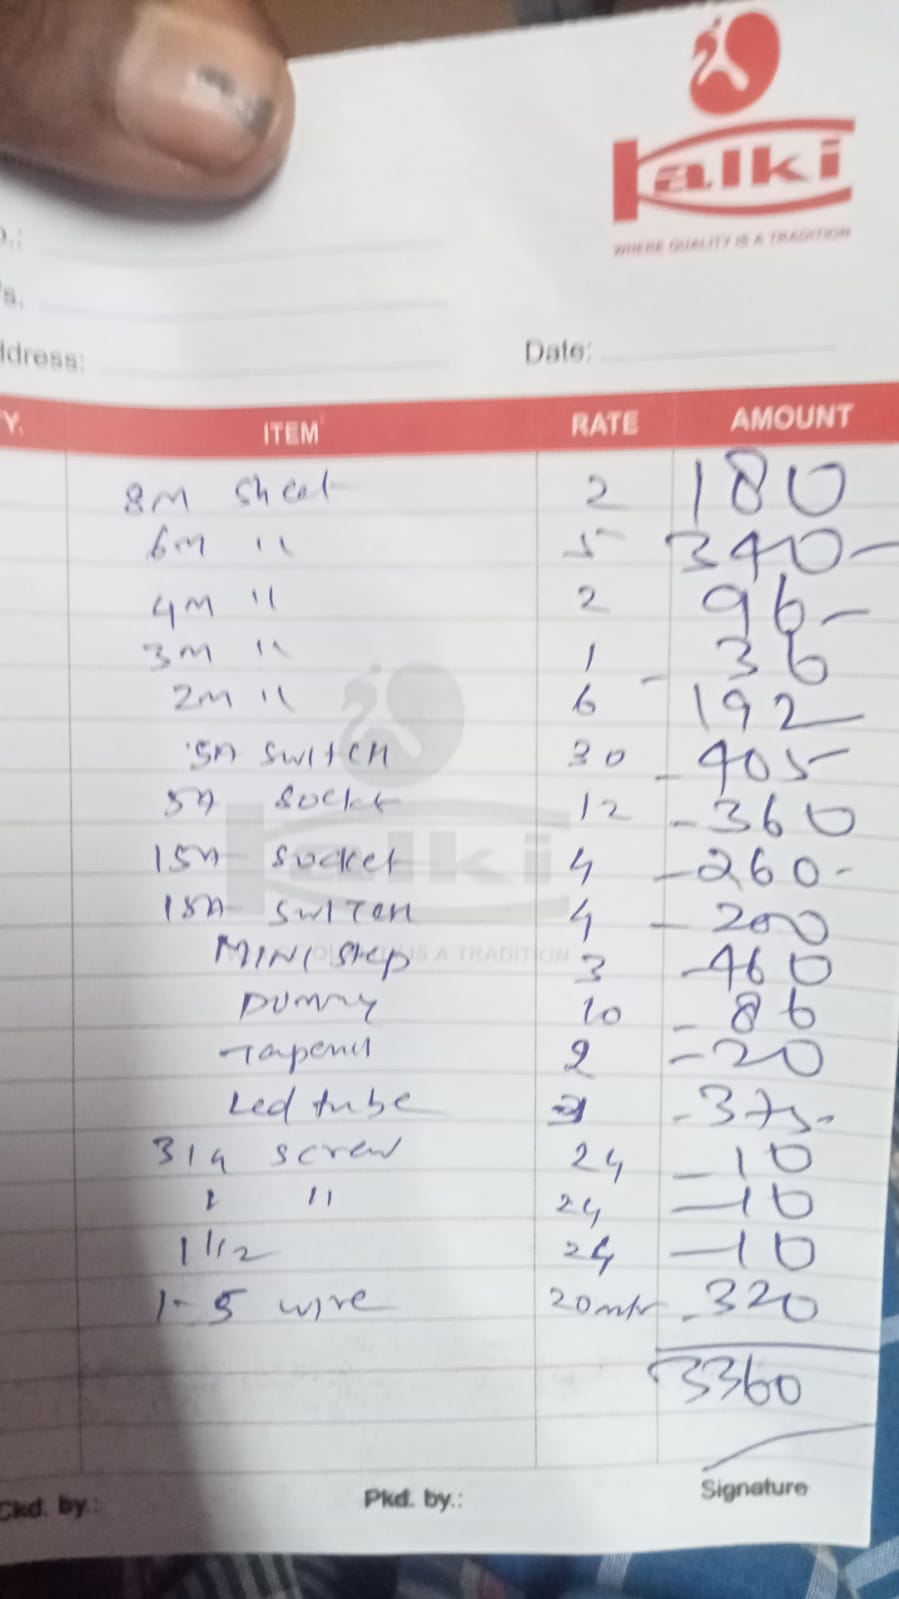 Kalki
WHERE QUALITY IS A TRADITION
Date:
ddress:
Y. ITEM RATE AMOUNT
8M Sheet 2 180
6M " 5 340-
4M " 2 96-
3M " 1 - 36
2M " 6 192
5A SWITCH 30 - 405
5A Socket 12 - 360
15A Socket 4 - 260-
15A SWITCH 4 - 200
MINI Step 3 - 460
DUMMY 10 - 86
2 = 20
Led tube - 375-
3/4 screw 24 - 10
1 " 24 - 10
1 1/2 24 - 10
1-5 wire 20mtr - 320
3360
Ckd. by.: Pkd. by.: Signature